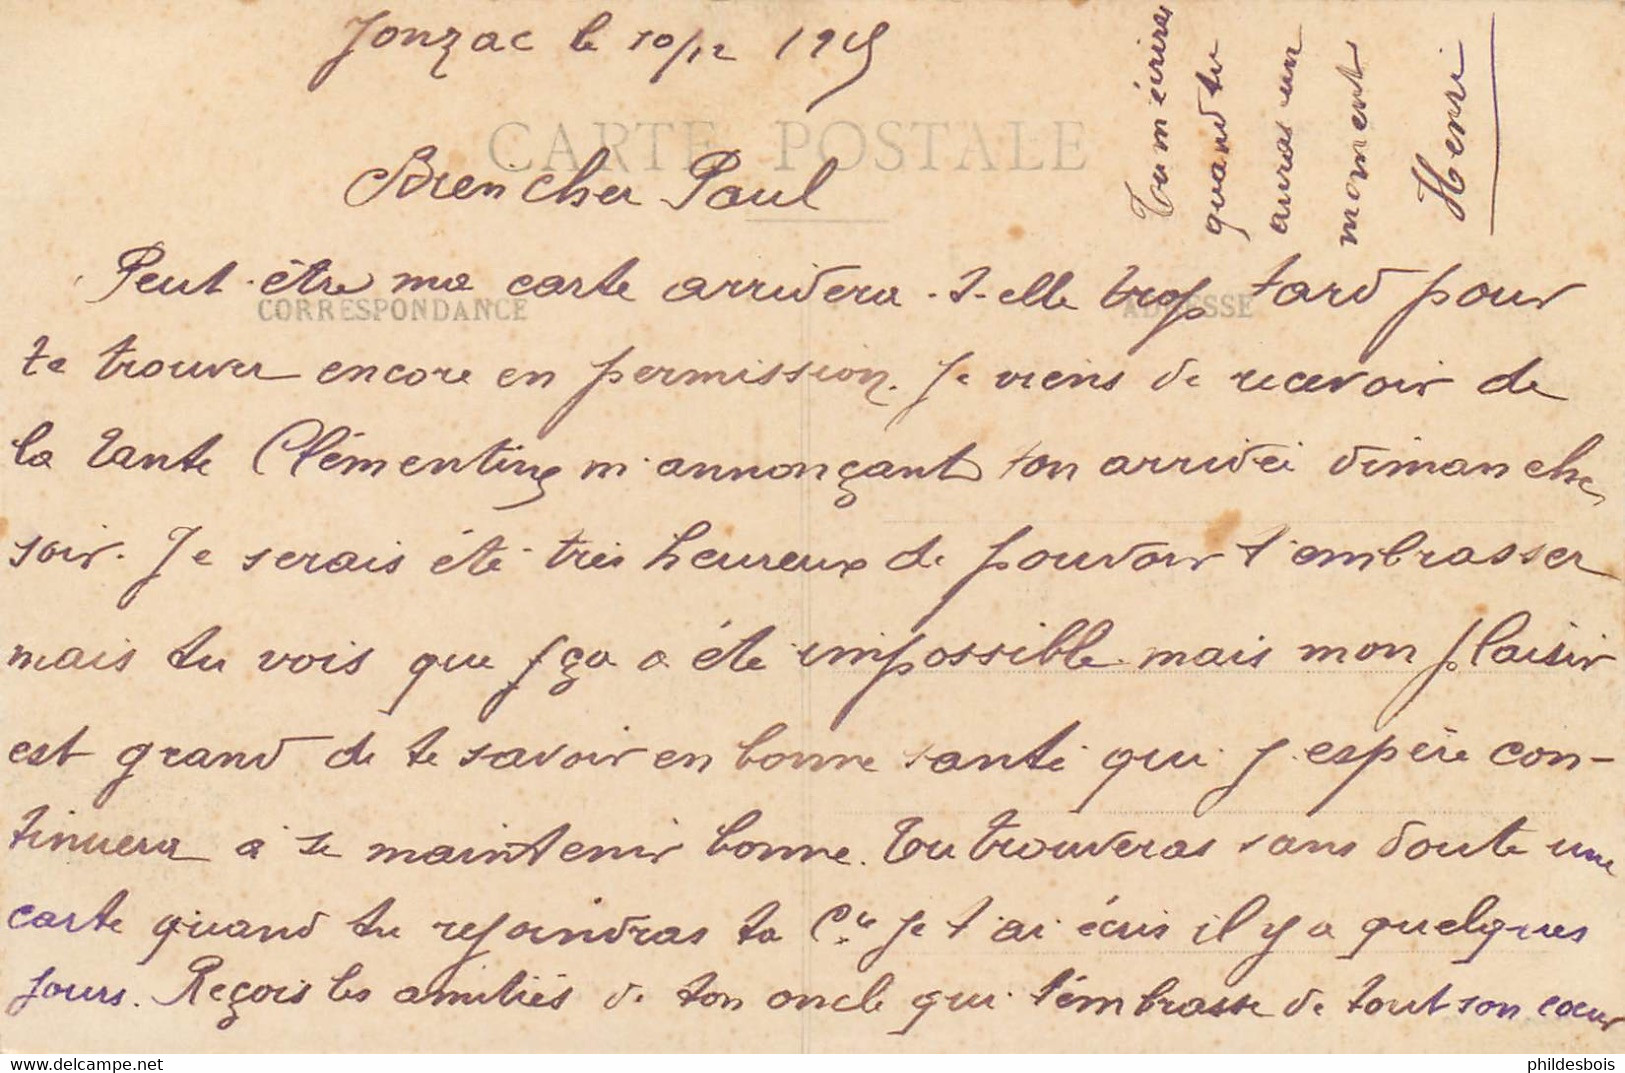 Jonzac le 10/12 1915
CARTE POSTALE
Bien cher Paul
Peut-être ma carte arrivera-t-elle trop tard pour
CORRESPONDANCE
ADRESSE
te trouver encore en permission. Je viens de recevoir de
la tante Clémentine m'annonçant ton arrivée dimanche
soir. Je serais été très heureux de pouvoir t'embrasser
mais tu vois que ça a été impossible mais mon plaisir
est grand de te savoir en bonne santé qui j'espère con-
tinuera à se maintenir bonne. Tu trouveras sans doute une
carte quand tu rejoindras ta Cie je t'ai écris il y a quelques
jours. Reçois les amitiés de ton oncle qui t'embrasse de tout son cœur
Tu m'écriras
quand tu
auras un
moment
Henri
phildesbois